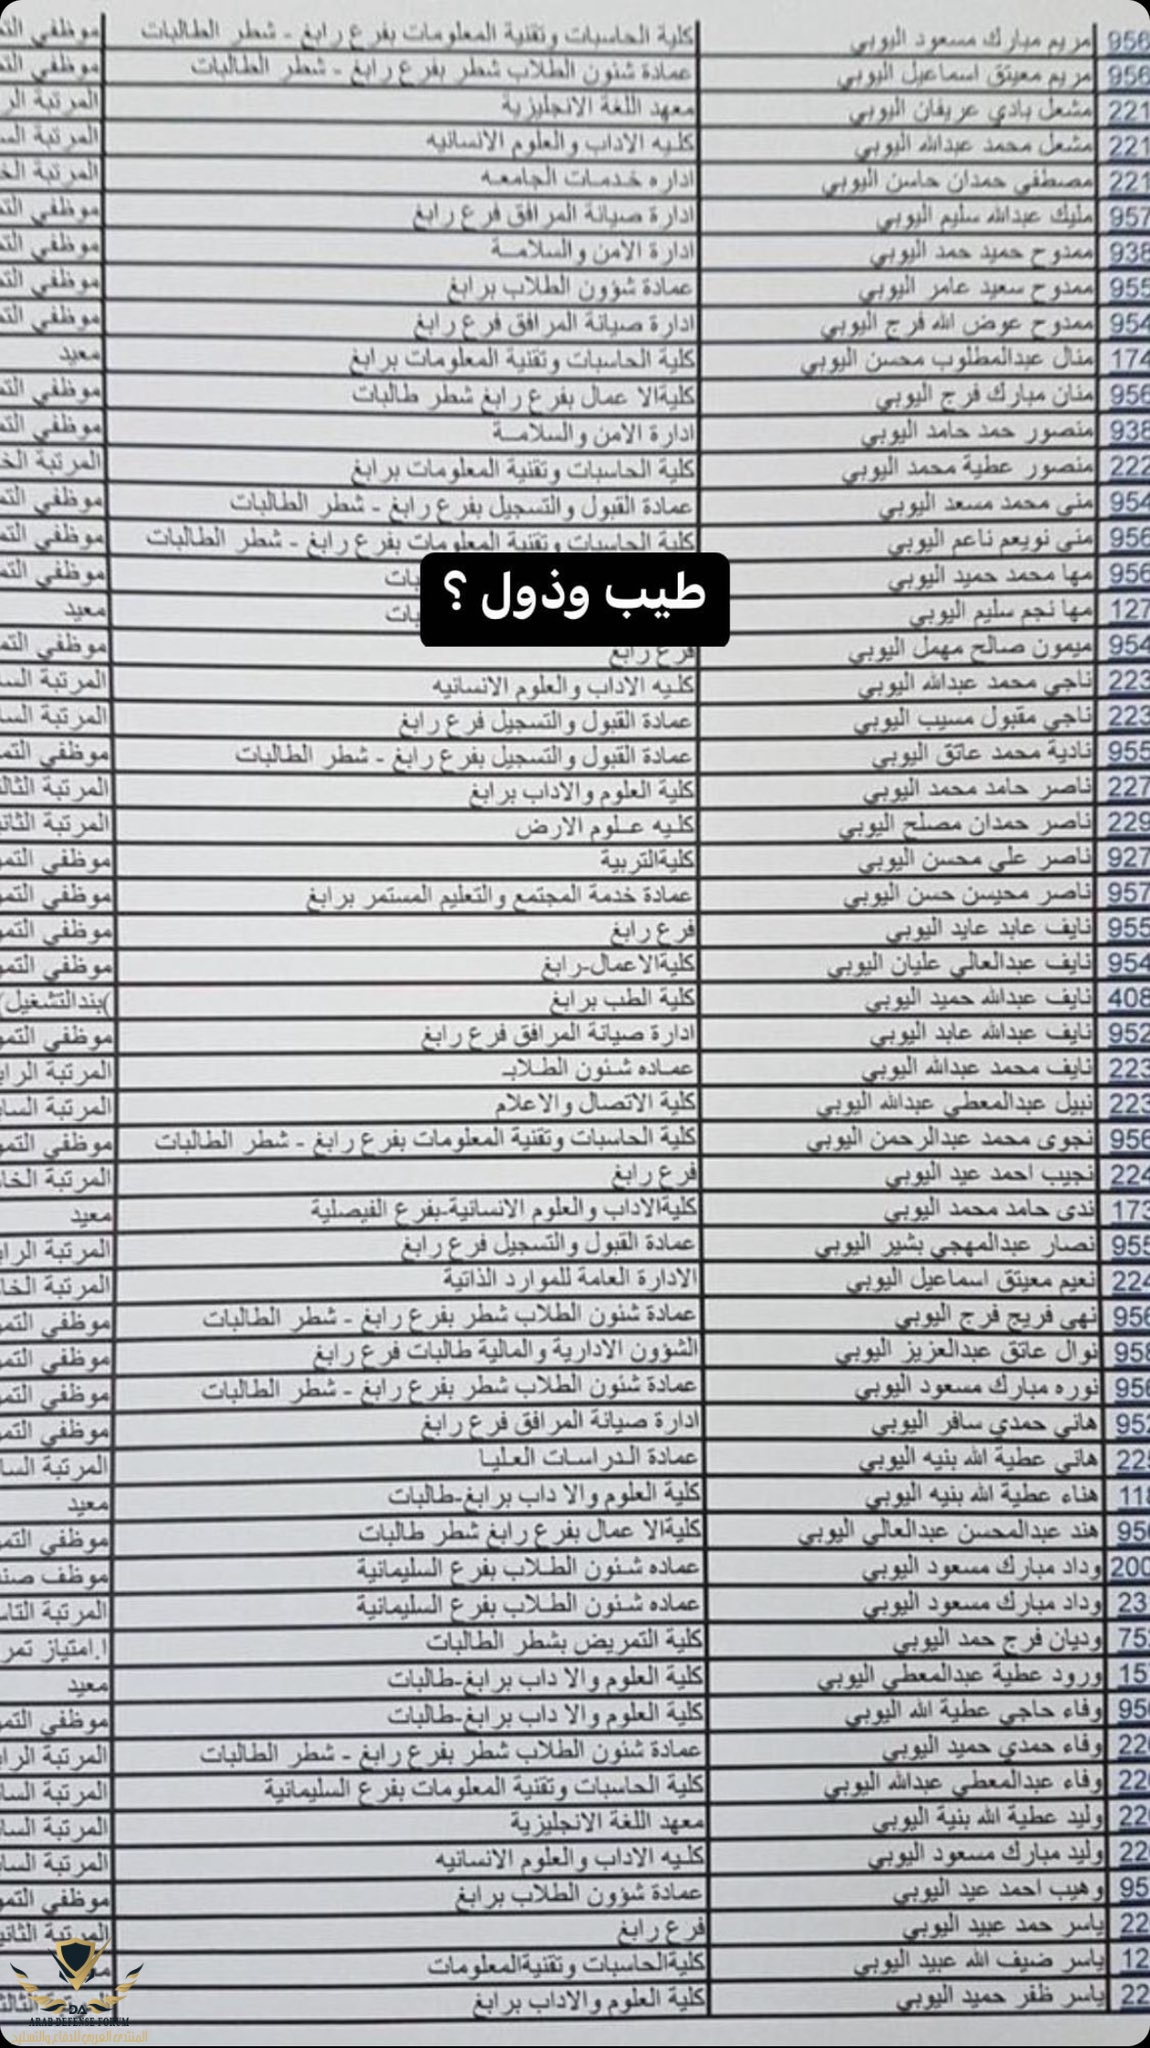 956 مريم مبارك مسعود اليوبي كلية الحاسبات وتقنية المعلومات بفرع رابغ - شطر الطالبات موظفي
956 مريم معيتق اسماعيل اليوبي عمادة شئون الطلاب شطر بفرع رابغ - شطر الطالبات موظفي
221 مشعل بادي عريفان اليوبي معهد اللغة الانجليزية المرتبة
221 مشعل محمد عبدالله اليوبي كليه الاداب والعلوم الانسانيه المرتبة
221 مصطفى حمدان حاسن اليوبي اداره خدمات الجامعه المرتبة
957 مليك عبدالله سليم اليوبي ادارة صيانة المرافق فرع رابغ موظفي
938 ممدوح حميد حمد اليوبي ادارة الامن والسلامة موظفي
955 ممدوح سعيد عامر اليوبي عمادة شؤون الطلاب برابغ موظفي
954 ممدوح عوض الله فرج اليوبي ادارة صيانة المرافق فرع رابغ موظفي
174 منال عبدالمطلوب محسن اليوبي كلية الحاسبات وتقنية المعلومات برابغ معيد
956 منان مبارك فرج اليوبي كليةالا عمال بفرع رابغ شطر طالبات موظفي
938 منصور حمد حامد اليوبي ادارة الامن والسلامة موظفي
222 منصور عطية محمد اليوبي كلية الحاسبات وتقنية المعلومات برابغ المرتبة
954 منى محمد مسعد اليوبي عمادة القبول والتسجيل بفرع رابغ - شطر الطالبات موظفي
956 منى نويعم ناعم اليوبي كلية الحاسبات وتقنية المعلومات بفرع رابغ - شطر الطالبات موظفي
956 مها محمد حميد اليوبي موظفي
طيب وذول ؟
127 مها نجم سليم اليوبي معيد
954 ميمون صالح مهمل اليوبي فرع رابغ موظفي
223 ناجي محمد عبدالله اليوبي كليه الاداب والعلوم الانسانيه المرتبة
223 ناجي مقبول مسيب اليوبي عمادة القبول والتسجيل فرع رابغ المرتبة
955 نادية محمد عاتق اليوبي عمادة القبول والتسجيل بفرع رابغ - شطر الطالبات موظفي
227 ناصر حامد محمد اليوبي كلية العلوم والاداب برابغ المرتبة
229 ناصر حمدان مصلح اليوبي كليه علوم الارض المرتبة
927 ناصر علي محسن اليوبي كليةالتربية موظفي
957 ناصر محيسن حسن اليوبي عمادة خدمة المجتمع والتعليم المستمر برابغ موظفي
955 نايف عابد عايد اليوبي فرع رابغ موظفي
954 نايف عبدالعالي عليان اليوبي كليةالاعمال-رابغ موظفي
408 نايف عبدالله حميد اليوبي كلية الطب برابغ )بندالتشغيل(
952 نايف عبدالله عابد اليوبي ادارة صيانة المرافق فرع رابغ موظفي
223 نايف محمد عبدالله اليوبي عماده شئون الطلاب المرتبة
223 نبيل عبدالمعطي عبدالله اليوبي كلية الاتصال والاعلام المرتبة
956 نجوى محمد عبدالرحمن اليوبي كلية الحاسبات وتقنية المعلومات بفرع رابغ - شطر الطالبات موظفي
224 نجيب احمد عيد اليوبي فرع رابغ المرتبة
173 ندى حامد محمد اليوبي كليةالاداب والعلوم الانسانية-بفرع الفيصلية معيد
955 نصار عبدالمهجي بشير اليوبي عمادة القبول والتسجيل فرع رابغ المرتبة
224 نعيم معيتق اسماعيل اليوبي الادارة العامة للموارد الذاتية المرتبة
956 نهى فريج فرج اليوبي عمادة شئون الطلاب شطر بفرع رابغ - شطر الطالبات موظفي
958 نوال عاتق عبدالعزيز اليوبي الشؤون الادارية والمالية طالبات فرع رابغ موظفي
956 نوره مبارك مسعود اليوبي عمادة شئون الطلاب شطر بفرع رابغ - شطر الطالبات موظفي
952 هاني حمدي سافر اليوبي ادارة صيانة المرافق فرع رابغ موظفي
225 هاني عطية الله بنيه اليوبي عمادة الدراسات العليا المرتبة
118 هناء عطية الله بنيه اليوبي كلية العلوم والا داب برابغ-طالبات معيد
956 هند عبدالمحسن عبدالعالي اليوبي كليةالا عمال بفرع رابغ شطر طالبات موظفي
200 وداد مبارك مسعود اليوبي عماده شئون الطلاب بفرع السليمانية موظف
23 وداد مبارك مسعود اليوبي عماده شئون الطلاب بفرع السليمانية المرتبة
75 وديان فرج حمد اليوبي كلية التمريض بشطر الطالبات ا.امتياز تمر
15 ورود عطية عبدالمعطي اليوبي كلية العلوم والا داب برابغ-طالبات معيد
95 وفاء حاجي عطية الله اليوبي كلية العلوم والا داب برابغ-طالبات موظفي
22 وفاء حمدي حميد اليوبي عمادة شئون الطلاب شطر بفرع رابغ - شطر الطالبات المرتبة
22 وفاء عبدالمعطي عبدالله اليوبي كلية الحاسبات وتقنية المعلومات بفرع السليمانية المرتبة
22 وليد عطية الله بنية اليوبي معهد اللغة الانجليزية المرتبة
22 وليد مبارك مسعود اليوبي كليه الاداب والعلوم الانسانيه المرتبة
95 وهيب احمد عيد اليوبي عمادة شؤون الطلاب برابغ موظفي
22 ياسر حمد عبيد اليوبي فرع رابغ المرتبة
12 ياسر ضيف الله عبيد اليوبي كليةالحاسبات وتقنيةالمعلومات
22 ياسر ظفر حميد اليوبي كلية العلوم والاداب برابغ
DA
ARAB DEFENSE FORUM
المنتدى العربي للدفاع والتسليح